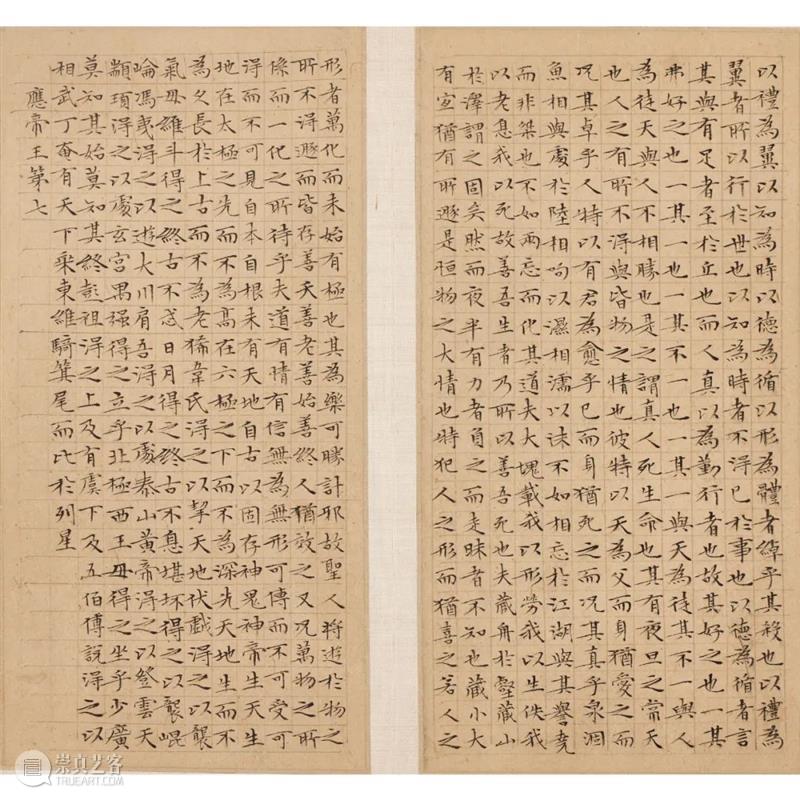 以禮為翼以知為時以德為循以形為體者綽乎其殺也以禮為
翼者所以行於世也以知為時者不得已於事也以德為循者言
其與有足者至於丘也而人真以為勤行者也故其好之也一其
弗好之也一其一也一其不一也一其一與天為徒其不一與人
為徒天與人不相勝也是之謂真人死生命也其有夜旦之常天
也人之有所不得與皆物之情也彼特以天為父而身猶愛之而
况其卓乎人特以有君為愈乎已而身猶死之而况其真乎泉涸
魚相與處於陸相呴以濕相濡以沫不如相忘於江湖與其譽堯
而非桀也不如兩忘而化其道夫大塊載我以形勞我以生佚我
以老息我以死故善吾生者乃所以善吾死也夫藏舟於壑藏山
於澤謂之固矣然而夜半有力者負之而走昧者不知也藏小大
有宜猶有所遯是恒物之大情也特犯人之形而猶喜之若人之
形者萬化而未始有極也其為樂可勝計邪故聖人將遊於物之
所不得遯而皆存善夭善老善始善終人猶效之又况萬物之所
係而一化之所待乎夫道有情有信無為無形可傳而不可受可
得而不可見自本自根未有天地自古以固存神鬼神帝生天生
地在太極之先而不為高在六極之下而不為深先天地生而不
為久長於上古而不為老狶韋氏得之以挈天地伏戲得之以襲
氣母維斗得之終古不忒日月得之終古不息堪坏得之以襲崐
崘馮夷得之以遊大川肩吾得之以處泰山黃帝得之以登雲天
顓頊得之以處玄宮禺强得之立乎北極西王母得之坐乎少廣
莫知其始莫知其終彭祖得之上及有虞下及五伯傅說得之以
相武丁奄有天下乘東維騎箕尾而比於列星
應帝王第七
崇真艺客
TRUEART.COM